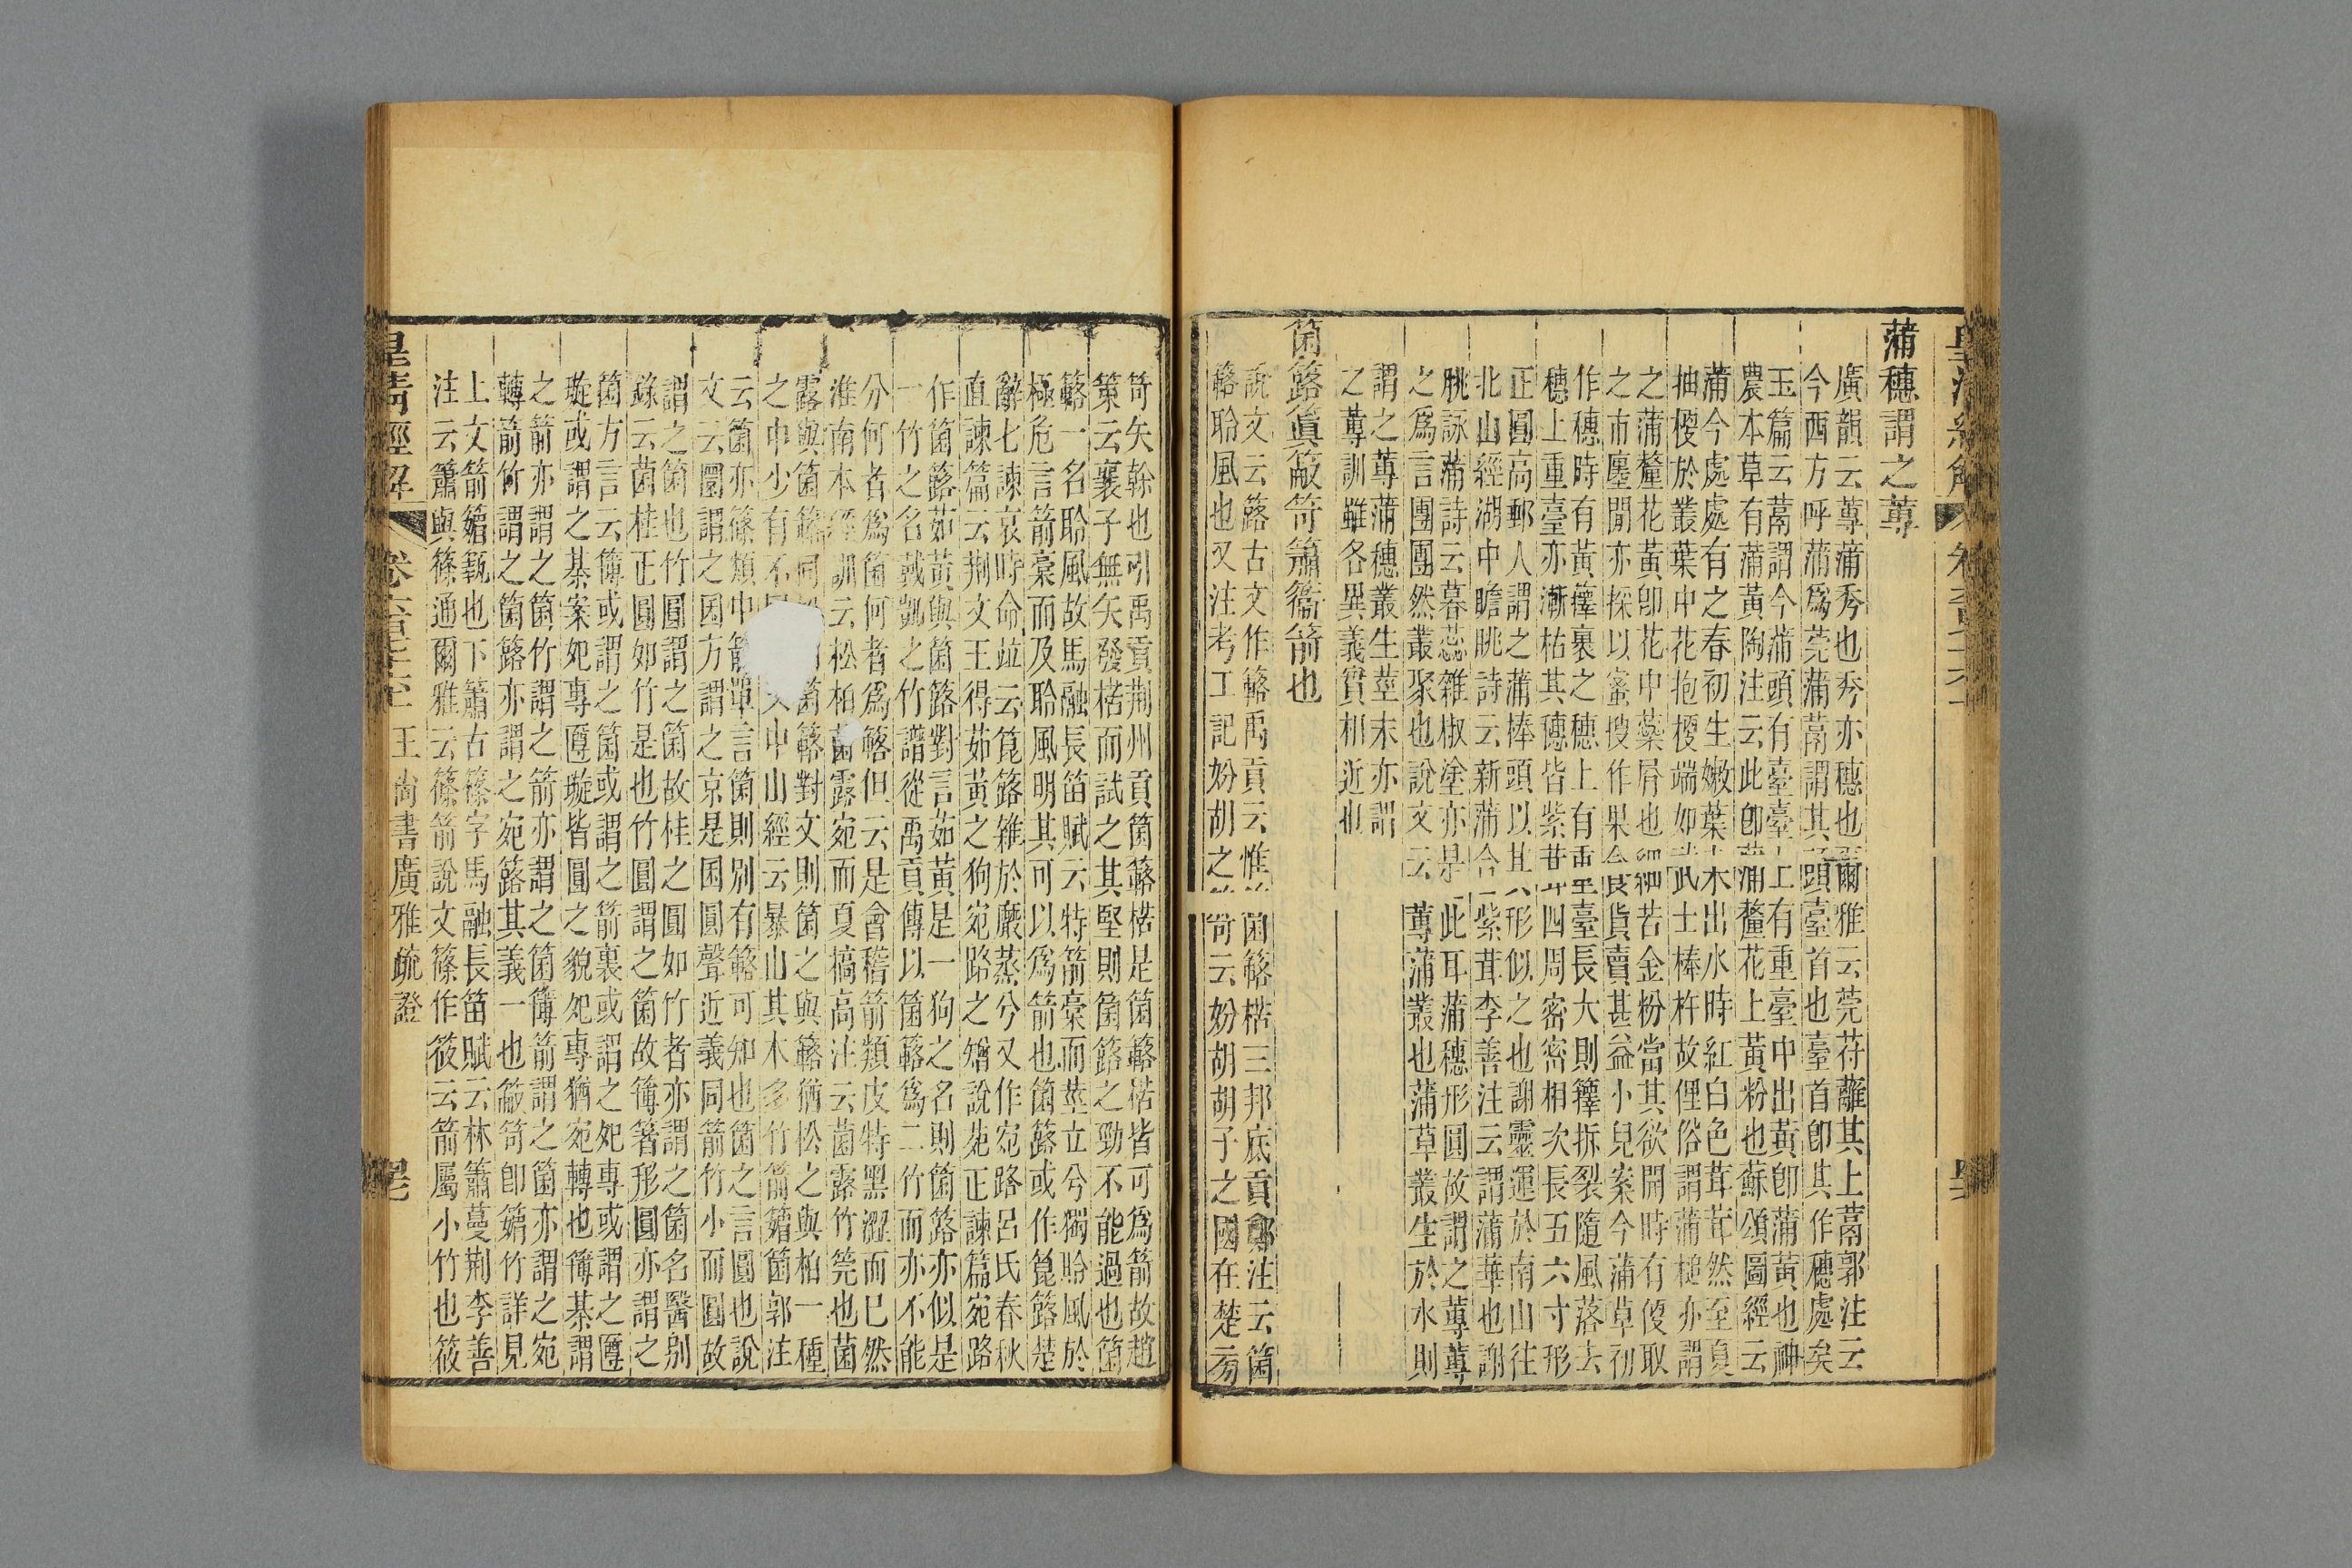 蒲穗謂之蓴
廣韻云蓴蒲秀也秀亦穗也爾雅云莞苻蘺其上蒚郭注云
今西方呼蒲爲莞蒲蒚謂其頭臺首也臺首卽其作穗處矣
玉篇云蒚謂今蒲頭有臺臺上有重臺中出黃卽蒲黃也神
農本草有蒲黃陶注云此卽蒲釐花上黃粉也蘇頌圖經云
蒲今處處有之春初生嫩葉未出水時紅白色茸茸然至夏
抽梗於叢葉中花抱梗端如武士棒杵故俚俗謂蒲槌亦謂
之蒲釐花黃卽花中蘂屑也細若金粉當其欲開時有便取
之市廛閒亦採以蜜搜作果食貨賣甚益小兒案今蒲草初
作穗時有黃籜裹之穗上有重臺長大則籜拆裂隨風落去
穗上重臺亦漸枯其穗皆紫茸四周密密相次長五六寸形
正圓高郵人謂之蒲棒頭以其形似之也謝靈運於南山往
北山經湖中瞻眺詩云新蒲含紫茸李善注云謂蒲華也謝
脁詠蒲詩云暮蕊雜椒塗亦是此耳蒲穗形圓故謂之蓴蓴
之爲言團團然叢聚也說文云蓴蒲叢也蒲草叢生於水則
謂之蓴蒲穗叢生莖末亦謂
之蓴訓雖各異義實相近也
箘簵簬簸笴簫䕎箭也
說文云簵古文作簬禹貢云惟箘簬楛三邦底貢鄭注云箘
簬聆風也又注考工記妢胡之笴云妢胡胡子之國在楚旁
笴矢幹也引禹貢荆州貢箘簬楛是箘簬楛皆可爲箭故趙
策云襄子無矢發楛而試之其堅則箘簬之勁不能過也箘
簬一名聆風故馬融長笛賦云特箭槀而莖立兮獨聆風於
極危言箭槀而及聆風明其可以爲箭也箘簬或作箟簬楚
辭七諫哀時命竝云箟簬雜於黀蒸兮又作宛路呂氏春秋
直諫篇云荆文王得茹黃之狗宛路之矰說苑正諫篇宛路
作箘簬茹黃與箘簬對言茹黃是一狗之名則箘簬亦似是
一竹之名戴凱之竹譜從禹貢傳以箘簬爲二竹而亦不能
分何者爲箘何者爲簬但云是會稽箭類皮特黑澀而已然
淮南本經訓云松柏菌露宛而夏槁高注云菌露竹筦也菌
露與箘簬同松箘簬對文則箘之與簬猶松之與柏一種
之中少有不同中山經云暴山其木多竹箭䉋箘郭注
云箘亦篠類中箭單言箘則別有簬可知也箘之言圓也說
文云圜謂之囷方謂之京是囷圓聲近義同箭竹小而圓故
謂之箘也竹圓謂之箘故桂之圓如竹者亦謂之箘名醫別
錄云菌桂正圓如竹是也竹圓謂之箘故簙箸形圓亦謂之
箘方言云簙或謂之箘或謂之箭裏或謂之夗專或謂之匴
璇或謂之棊案夗專匴璇皆圓之貌夗專猶宛轉也簙棊謂
之箭亦謂之箘竹謂之箭亦謂之箘簙箭謂之箘亦謂之宛
轉箭竹謂之箘簬亦謂之宛簬其義一也簸笴卽䉋竹詳見
上文箭䉋䈥也下簫古篠字馬融長笛賦云林簫蔓荆李善
注云簫與篠通爾雅云篠箭說文篠作筱云箭屬小竹也筱
皇清經解
王尚書廣雅疏證